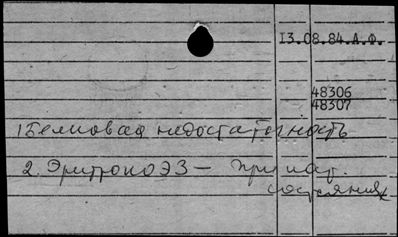 13.08.84.А.Ф.
48306
48307
1 Белковая недостаточность
2. Эритропоэз — при пат.
состояниях